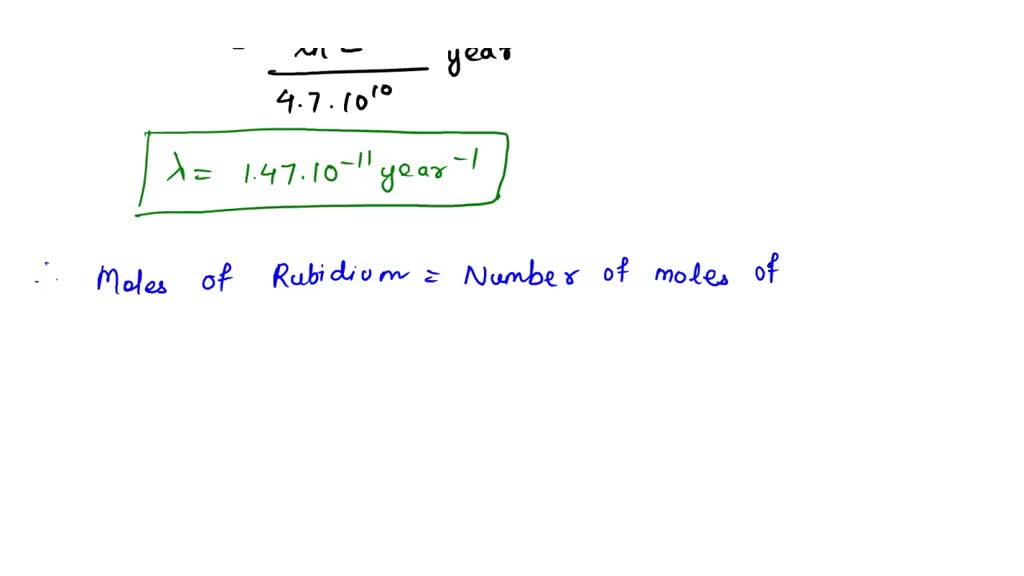 year
4.7.10¹⁰
λ = 1.47.10⁻¹¹ year⁻¹
∴ Moles of Rubidium = Number of moles of